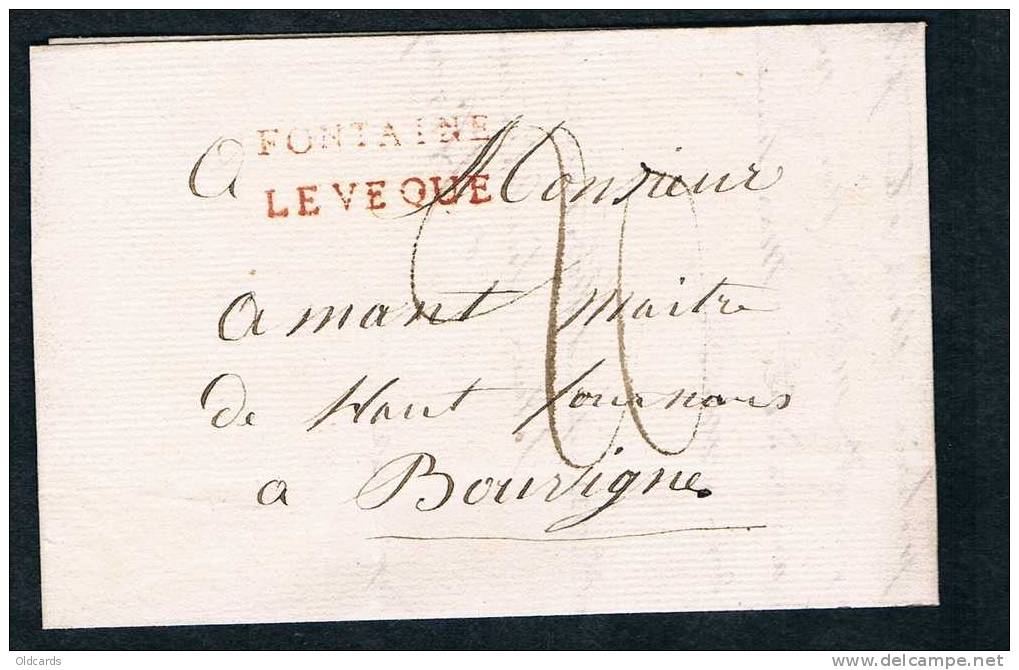 FONTAINE
LEVEQUE
A Monsieur
amant maitre
de haut fournaus
a Bouvigne
20
Oldcards
www.delcampe.net